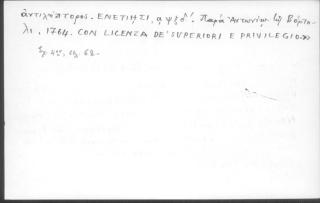 ἀντιλήπτορος. ΕΝΕΤΙΗΣΙ, αψξδ'. Παρὰ Ἀντωνίῳ τῷ Βόρτο-
λι, 1764. CON LICENZA DE' SUPERIORI E PRIVILEGIO.»
Σχ. 4ον, σελ. 62.